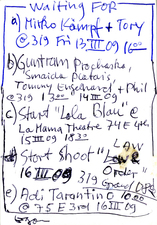 Waiting FOR
a) Mirko Kämpf + Tory
@ 319 Fri 13 III 09 16 00
b) Guntram Prochaska,
Smaida Platais,
Tommy + Phil
@ 319 13 00 14 III 09
c) Start "Lola Blau" @
La Mama Theatre 74 E 4th
15 III 09 18 30
d) Start Shoot "LAW
16 III 09 Order"
@ 319
e) Adi Tarantino 10.00
@ 75 E 3rd 16 III 09